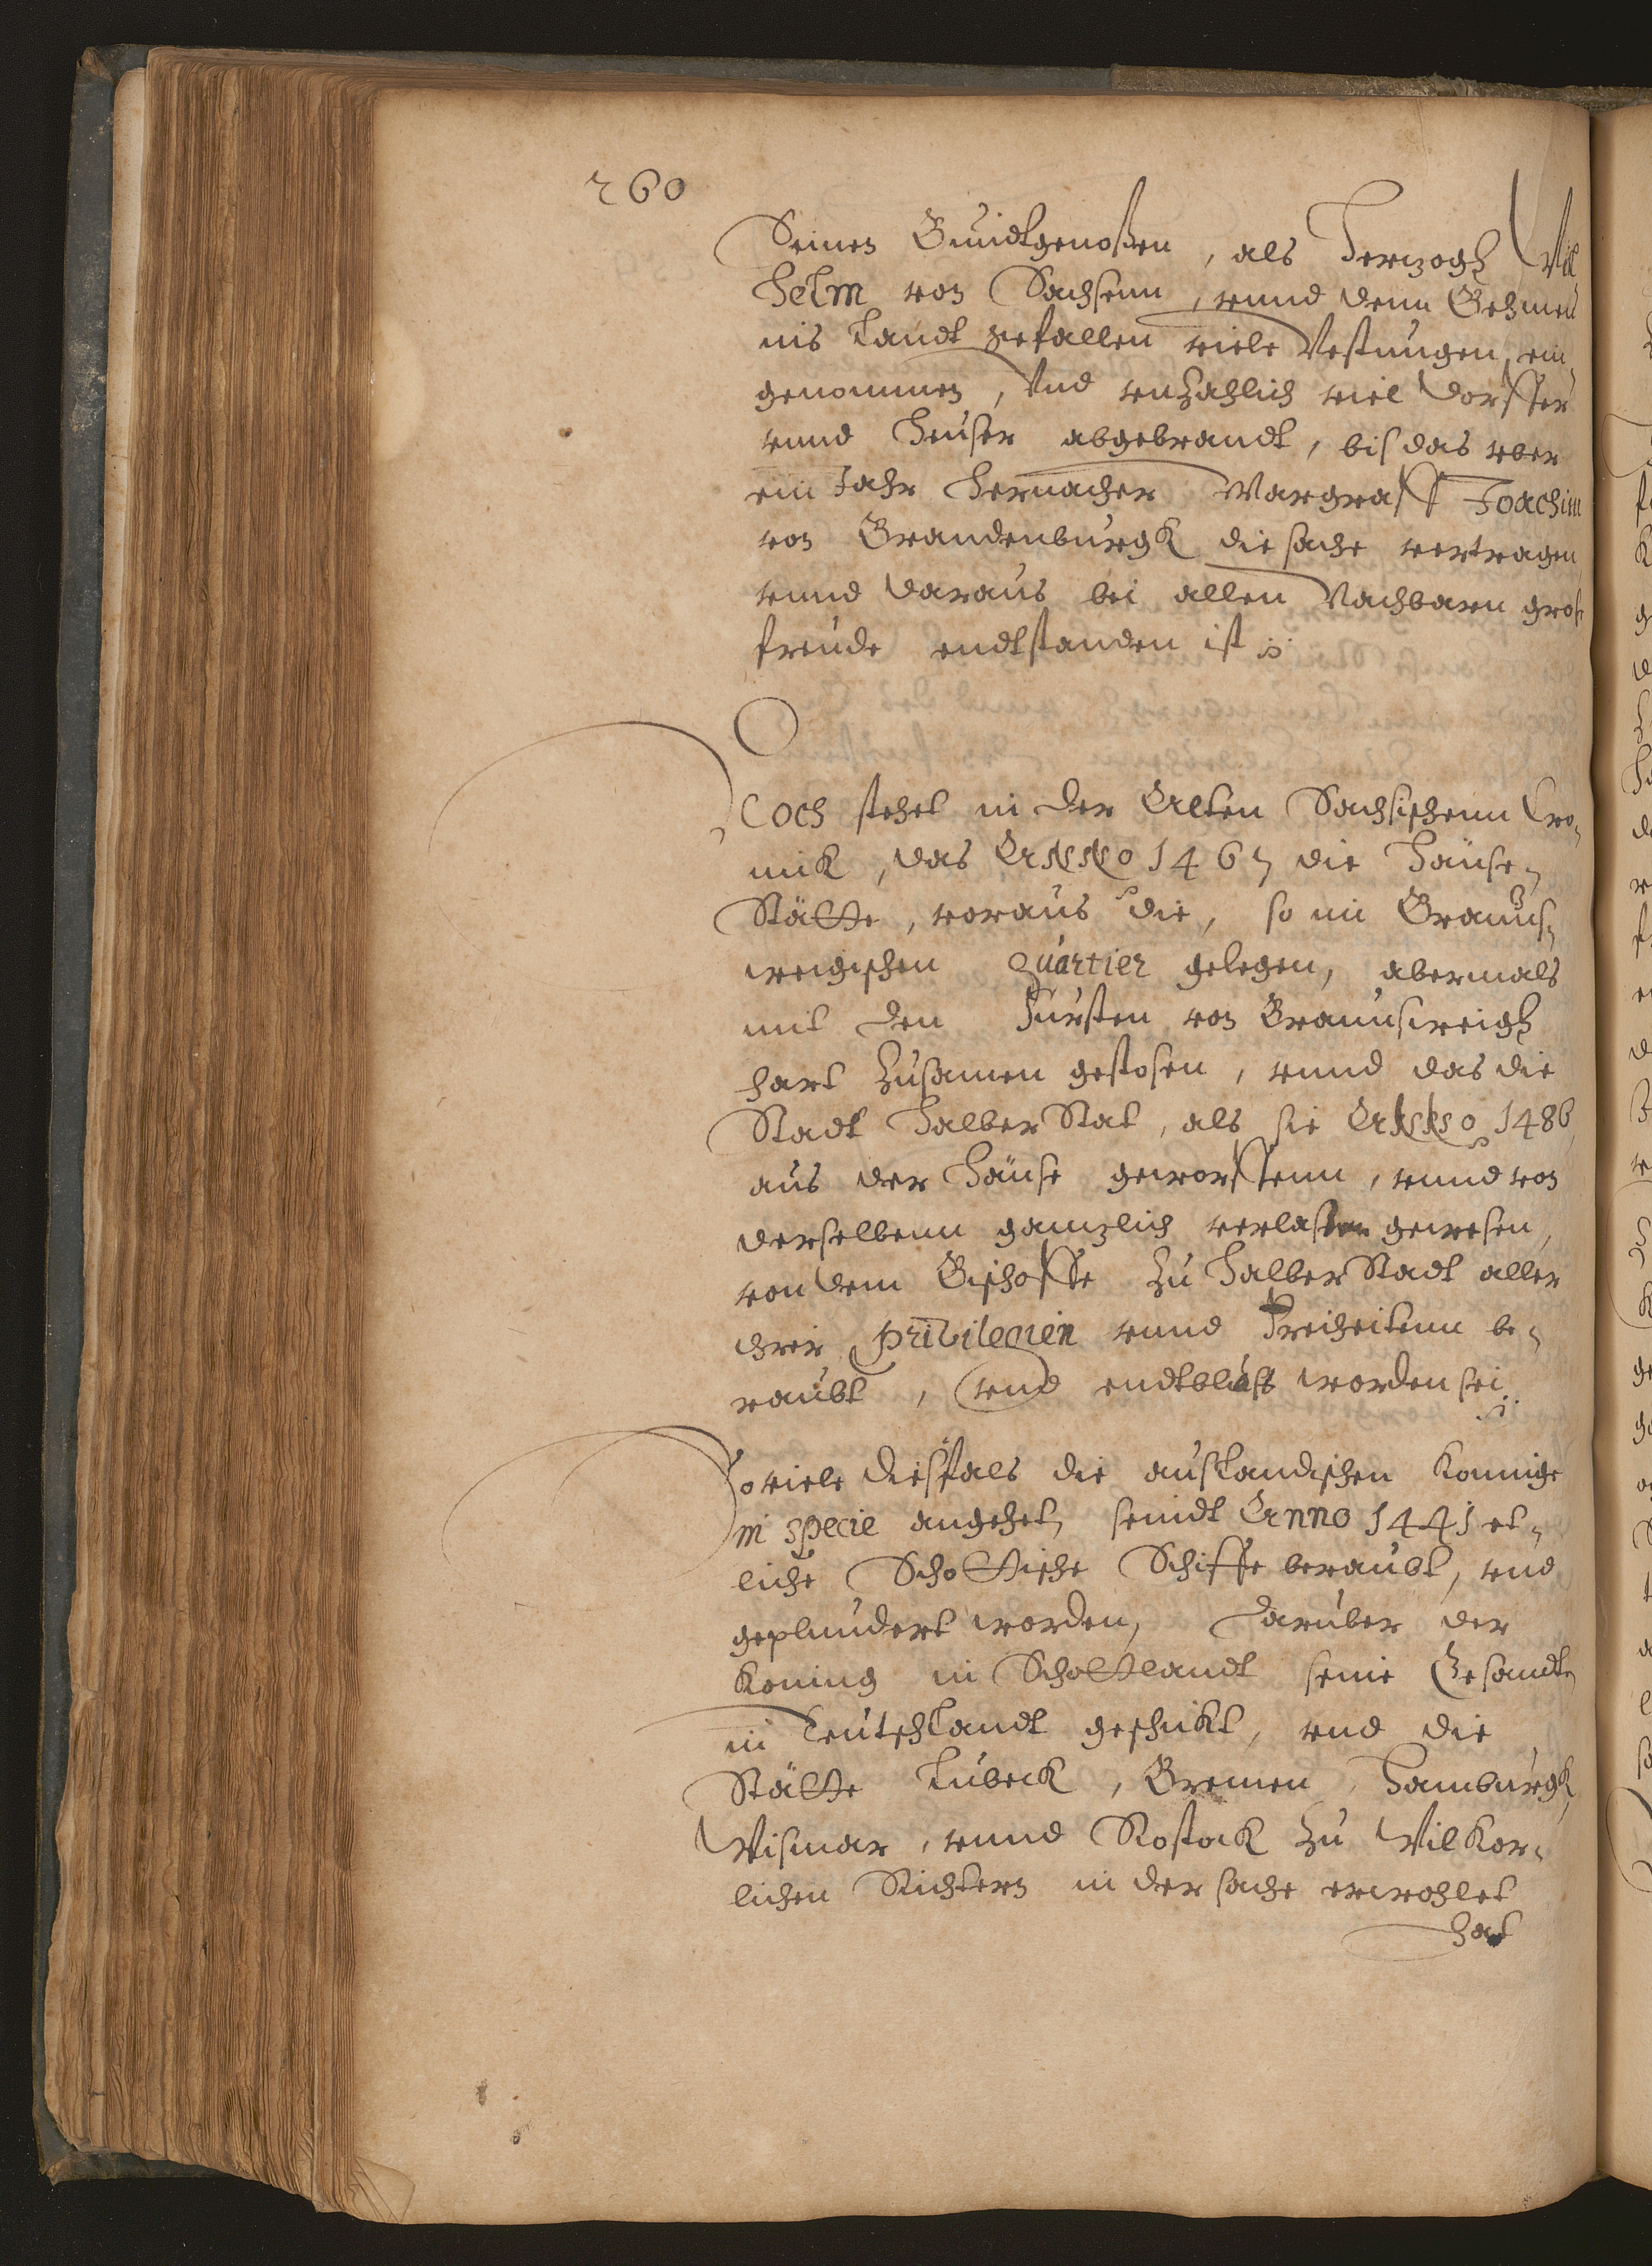 260
Seinen Bundtgenoßen, als Hertzogh Wil
helm von Sachsenn, vnnd denn Behmen
ins Landt gefallen viele Vestungen ein,
genommen, Vnd vnzahlich viel dorffer
vnnd Heuser abgebrandt, bis das vber
ein Jahr hernacher Margraff Joachim
von Brandenburgk die sache vertragen
vnnd daraus bei allen Nachbarn gros
freude endtstanden ist
Noch stehet in der Alten Sachsischenn Cro,
nik, das Anno 1467 die Hänse,
Stätte, voraus die, so im Brauns,
weigischen Quartier gelegen, abermals
mit den Fürsten von Braunsweigh
hart zusamen gestosen, vnnd das die
Stadt HalberStat, als sie Anno 1486
aus der Hänse geworffenn, vnnd von
derselbenn gantzlich verlasen gewesen,
von dem Bischoffe zu HalberStadt aller
ihrer privilegien vnnd Freiheitenn be,
raubt, vnd endtblöst worden sei
So viele diesfals die auslandischen Konnige
in specie angehet, seindt Anno 1441 et,
liche Schottische Schiffe beraubt, vnd
geplundert worden, Daruber der
Koning in Schottlandt seine Gesandte
in Teutschlandt geschikt, vnd die
Stätte Lübeck, Bremen, Hamburgk,
Wismar, vnnd Rostok zu Wilkor,
lichen Richtern in der sache erwohlet
hat